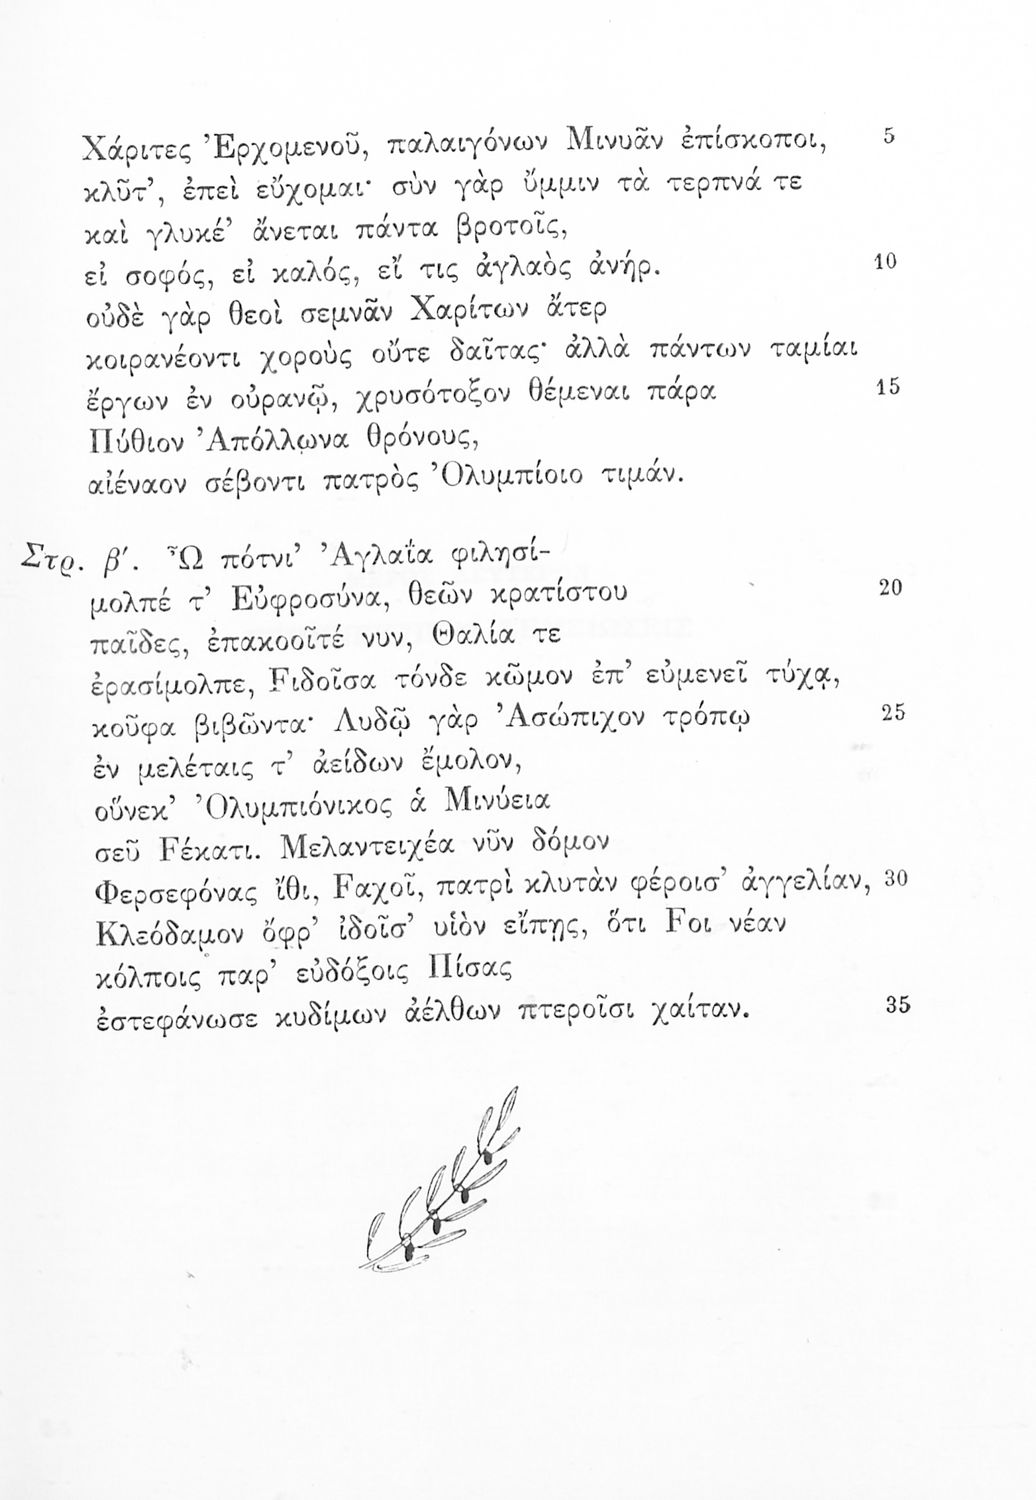 Χάριτες Ἐρχομενοῦ, παλαιγόνων Μινυᾶν ἐπίσκοποι, 5
κλῦτ’, ἐπεὶ εὔχομαι· σὺν γὰρ ὔμμιν τὰ τερπνά τε
καὶ γλυκέ’ ἄνεται πάντα βροτοῖς,
εἰ σοφός, εἰ καλός, εἴ τις ἀγλαὸς ἀνήρ. 10
οὐδὲ γὰρ θεοὶ σεμνᾶν Χαρίτων ἄτερ
κοιρανέοντι χοροὺς οὔτε δαῖτας· ἀλλὰ πάντων ταμίαι
ἔργων ἐν οὐρανῷ, χρυσότοξον θέμεναι πάρα 15
Πύθιον Ἀπόλλωνα θρόνους,
αἰέναον σέβοντι πατρὸς Ὀλυμπίοιο τιμάν.
Στρ. β′. Ὦ πότνι’ Ἀγλαΐα φιλησί-
μολπέ τ’ Εὐφροσύνα, θεῶν κρατίστου 20
παῖδες, ἐπακοοῖτέ νυν, Θαλία τε
ἐρασίμολπε, Ϝιδοῖσα τόνδε κῶμον ἐπ’ εὐμενεῖ τύχᾳ,
κοῦφα βιβῶντα· Λυδῷ γὰρ Ἀσώπιχον τρόπῳ 25
ἐν μελέταις τ’ ἀείδων ἔμολον,
οὕνεκ’ Ὀλυμπιόνικος ἁ Μινύεια
σεῦ Ϝέκατι. Μελαντειχέα νῦν δόμον
Φερσεφόνας ἴθι, Ϝαχοῖ, πατρὶ κλυτὰν φέροισ’ ἀγγελίαν, 30
Κλεόδαμον ὄφρ’ ἰδοῖσ’ υἱὸν εἴπῃς, ὅτι Ϝοι νέαν
κόλποις παρ’ εὐδόξοις Πίσας
ἐστεφάνωσε κυδίμων ἀέλθων πτεροῖσι χαίταν. 35